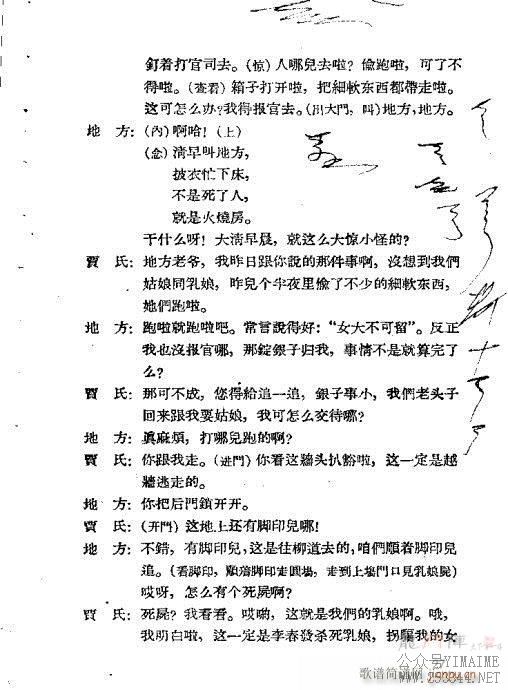 釘着打官司去。(惊)人哪兒去啦？偸跑啦，可了不
得啦。(查看)箱子打开啦，把細軟东西都帶走啦。
这可怎么办？我得报官去。(出大門，叫)地方，地方。
地　方：(內)啊哈！(上)
(念)清早叫地方，
披衣忙下床，
不是死了人，
就是火燒房。
干什么呀！大清早晨，就这么大惊小怪的？
賈　氏：地方老爷，我昨日跟你說的那件事啊，沒想到我們
姑娘同乳娘，昨兒个半夜里偸了不少的細軟东西，
她們跑啦。
地　方：跑啦就跑啦吧。常言說得好：“女大不可留”。反正
我也沒报官哪，那錠銀子归我，事情不是就算完了
么？
賈　氏：那可不成，您得給追一追，銀子事小，我們老头子
回来跟我要姑娘，我可怎么交待哪？
地　方：眞麻煩，打哪兒跑的啊？
賈　氏：你跟我走。(进門)你看这牆头扒豁啦，这一定是越
牆逃走的。
地　方：你把后門鎖开开。
賈　氏：(开門)这地上还有脚印兒哪！
地　方：不錯，有脚印兒，这是往柳道去的，咱們順着脚印兒
追。(看脚印，順着脚印走圓場，走到上場門口見乳娘屍)
哎呀，怎么有个死屍啊？
賈　氏：死屍？我看看。哎喲，这就是我們的乳娘啊。哦，
我明白啦，这一定是李春發杀死乳娘，拐騙我的女
公众号YIMAIME
歌谱简谱网